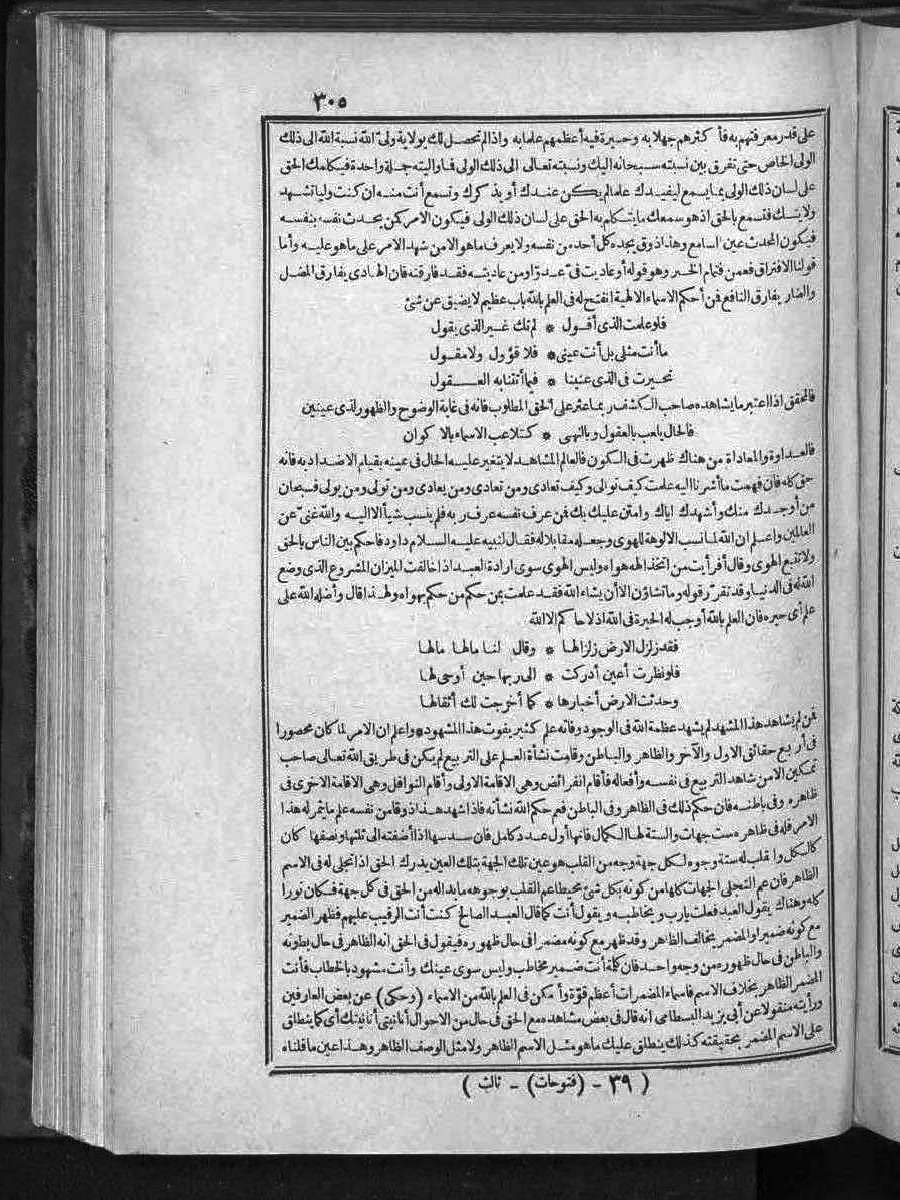 ٣٠٥
على قدر معرفتهم به فأكثرهم جهلا به وحيرة فيه أعظمهم علما به واذا لم تحصل لك بولاية ولىّ الله نسبة الله الى ذلك
الولى الخاص حتى تفرق بين نسبته سبحانه اليك ونسبته تعالى الى ذلك الولى فما واليته جملة واحدة فيكلمك الحق
على لسان ذلك الولى بما يسمع ليفيدك علما لم يكن عندك أو يذكرك وتسمع أنت منه ان كنت وليا تشهد
ولايتك فتسمع بالحق اذ هو سمعك ما يتكلم به الحق على لسان ذلك الولى فيكون الامر كمن يحدث نفسه بنفسه
فيكون المحدث عين السامع وهذا ذوق يجده كل أحد من نفسه ولا يعرف ما هو الا من شهد الامر على ما هو عليه وأما
قولنا الافتراق فمن تمام الخبر وهو قوله أو عاديت فىّ عدوّا ومن عاديته فقد فارقته فان الهادى يفارق المضل
والضار يفارق النافع فمن أحكم الاسماء الالهية انفتح له فى العلم بالله باب عظيم لا يضيق عن شئ
فلو علمت الذى أقول * لم تك غير الذى يقول
ما أنت مثلى بل أنت عينى * فلا قؤول ولا مقول
تحيرت فى الذى عنينا * فما أتتنا به العقول
فالمحقق اذا اعتبر ما يشاهده صاحب الكشف ربما عثر على الحق المطلوب فانه فى غاية الوضوح والظهور لذى عينين
فالحال يلعب بالعقول وبالنهى * كتلاعب الاسماء بالاكوان
فالعداوة والمعاداة من هناك ظهرت فى الكون فالعالم المشاهد لا يتغير عليه الحال فى عينه بقيام الاضداد به فانه
حق كله فان فهمت ما أشرنا اليه علمت كيف توالى وكيف تعادى ومن تعادى ومن يعادى ومن تولى ومن يولى فسبحان
من أوجدك منك وأشهدك اياك وامتن عليك بك فمن عرف نفسه عرف ربه فلم ينسب شيأ الا اليه والله غنىّ عن
العالمين واعلم ان الله لما نسب الالوهة للهوى وجعله مقابلا له فقال لنبيه عليه السلام داود فاحكم بين الناس بالحق
ولا تتبع الهوى وقال أفرأيت من اتخذ الهه هواه وليس الهوى سوى ارادة العبد اذا خالفت الميزان المشروع الذى وضع
الله له فى الدنيا وقد تقرّر قوله وما تشاؤن الا أن يشاء الله فقد علمت بمن حكم من حكم بهواه ولهذا قال وأضله الله على
علم أى حيره فان العلم بالله أوجب له الحيرة فى الله اذ لا حاكم الا الله
فقد زلزل الارض زلزالها * وقال لنا مالها مالها
فلو نظرت أعين أدركت * الى ربها حين أوحى لها
وحدثت الارض أخبارها * كما أخرجت لك أثقالها
فمن لم يشاهد هذا المشهد لم يشهد عظمة الله فى الوجود وفاته علم كثير يفوت هذا المشهود * واعلم ان الامر لما كان محصورا
فى أربع حقائق الاول والآخر والظاهر والباطن وقامت نشأة العلم على التربيع لم يكن فى طريق الله تعالى صاحب
تمكين الا من شاهد التربيع فى نفسه وأفعاله فأقام الفرائض وهى الاقامة الاولى وأقام النوافل وهى الاقامة الاخرى فى
ظاهره وفى باطنه فان حكم ذلك فى الظاهر وفى الباطن فعم حكم الله نشأته فاذا شهد هذا ذوقا من نفسه علم ما يثمر له هذا
الامر فله فى ظاهره ست جهات والستة لها الكمال فانها أول عدد كامل فان سدسها اذا أضفته الى ثلثها ونصفها كان
كالكل والقلب له ستة وجوه لكل جهة وجه من القلب هو عين تلك الجهة بتلك العين يدرك الحق اذا تجلى له فى الاسم
الظاهر فان عم التجلى الجهات كلها من كونه بكل شئ محيطا عم القلب بوجوهه ما بدا له من الحق فى كل جهة فكان نورا
كله وهناك يقول العبد فعلت يا رب ويخاطبه ويقول أنت كما قال العبد الصالح كنت أنت الرقيب عليهم فظهر الضمير
مع كونه ضميرا والمضمر يخالف الظاهر وقد ظهر مع كونه مضمرا فى حال ظهوره فيقول فى الحق انه الظاهر فى حال بطونه
والباطن فى حال ظهوره من وجه واحد فان كلمة أنت ضمير مخاطب وليس سوى عينك وأنت مشهود بالخطاب فأنت
المضمر الظاهر بخلاف الاسم فاسماء المضمرات أعظم قوّة وأمكن فى العلم بالله من الاسماء (وحكى) عن بعض العارفين
ورأيته منقولا عن أبى يزيد البسطامى انه قال فى بعض مشاهده مع الحق فى حال من الاحوال أنانيتى أنانيتك أى كما ينطلق
على الاسم المضمر بحقيقته كذلك ينطلق عليك ما هو مثل الاسم الظاهر ولا مثل الوصف الظاهر وهذا عين ما قلناه
( ٣٩ - (فتوحات) - ثالث )